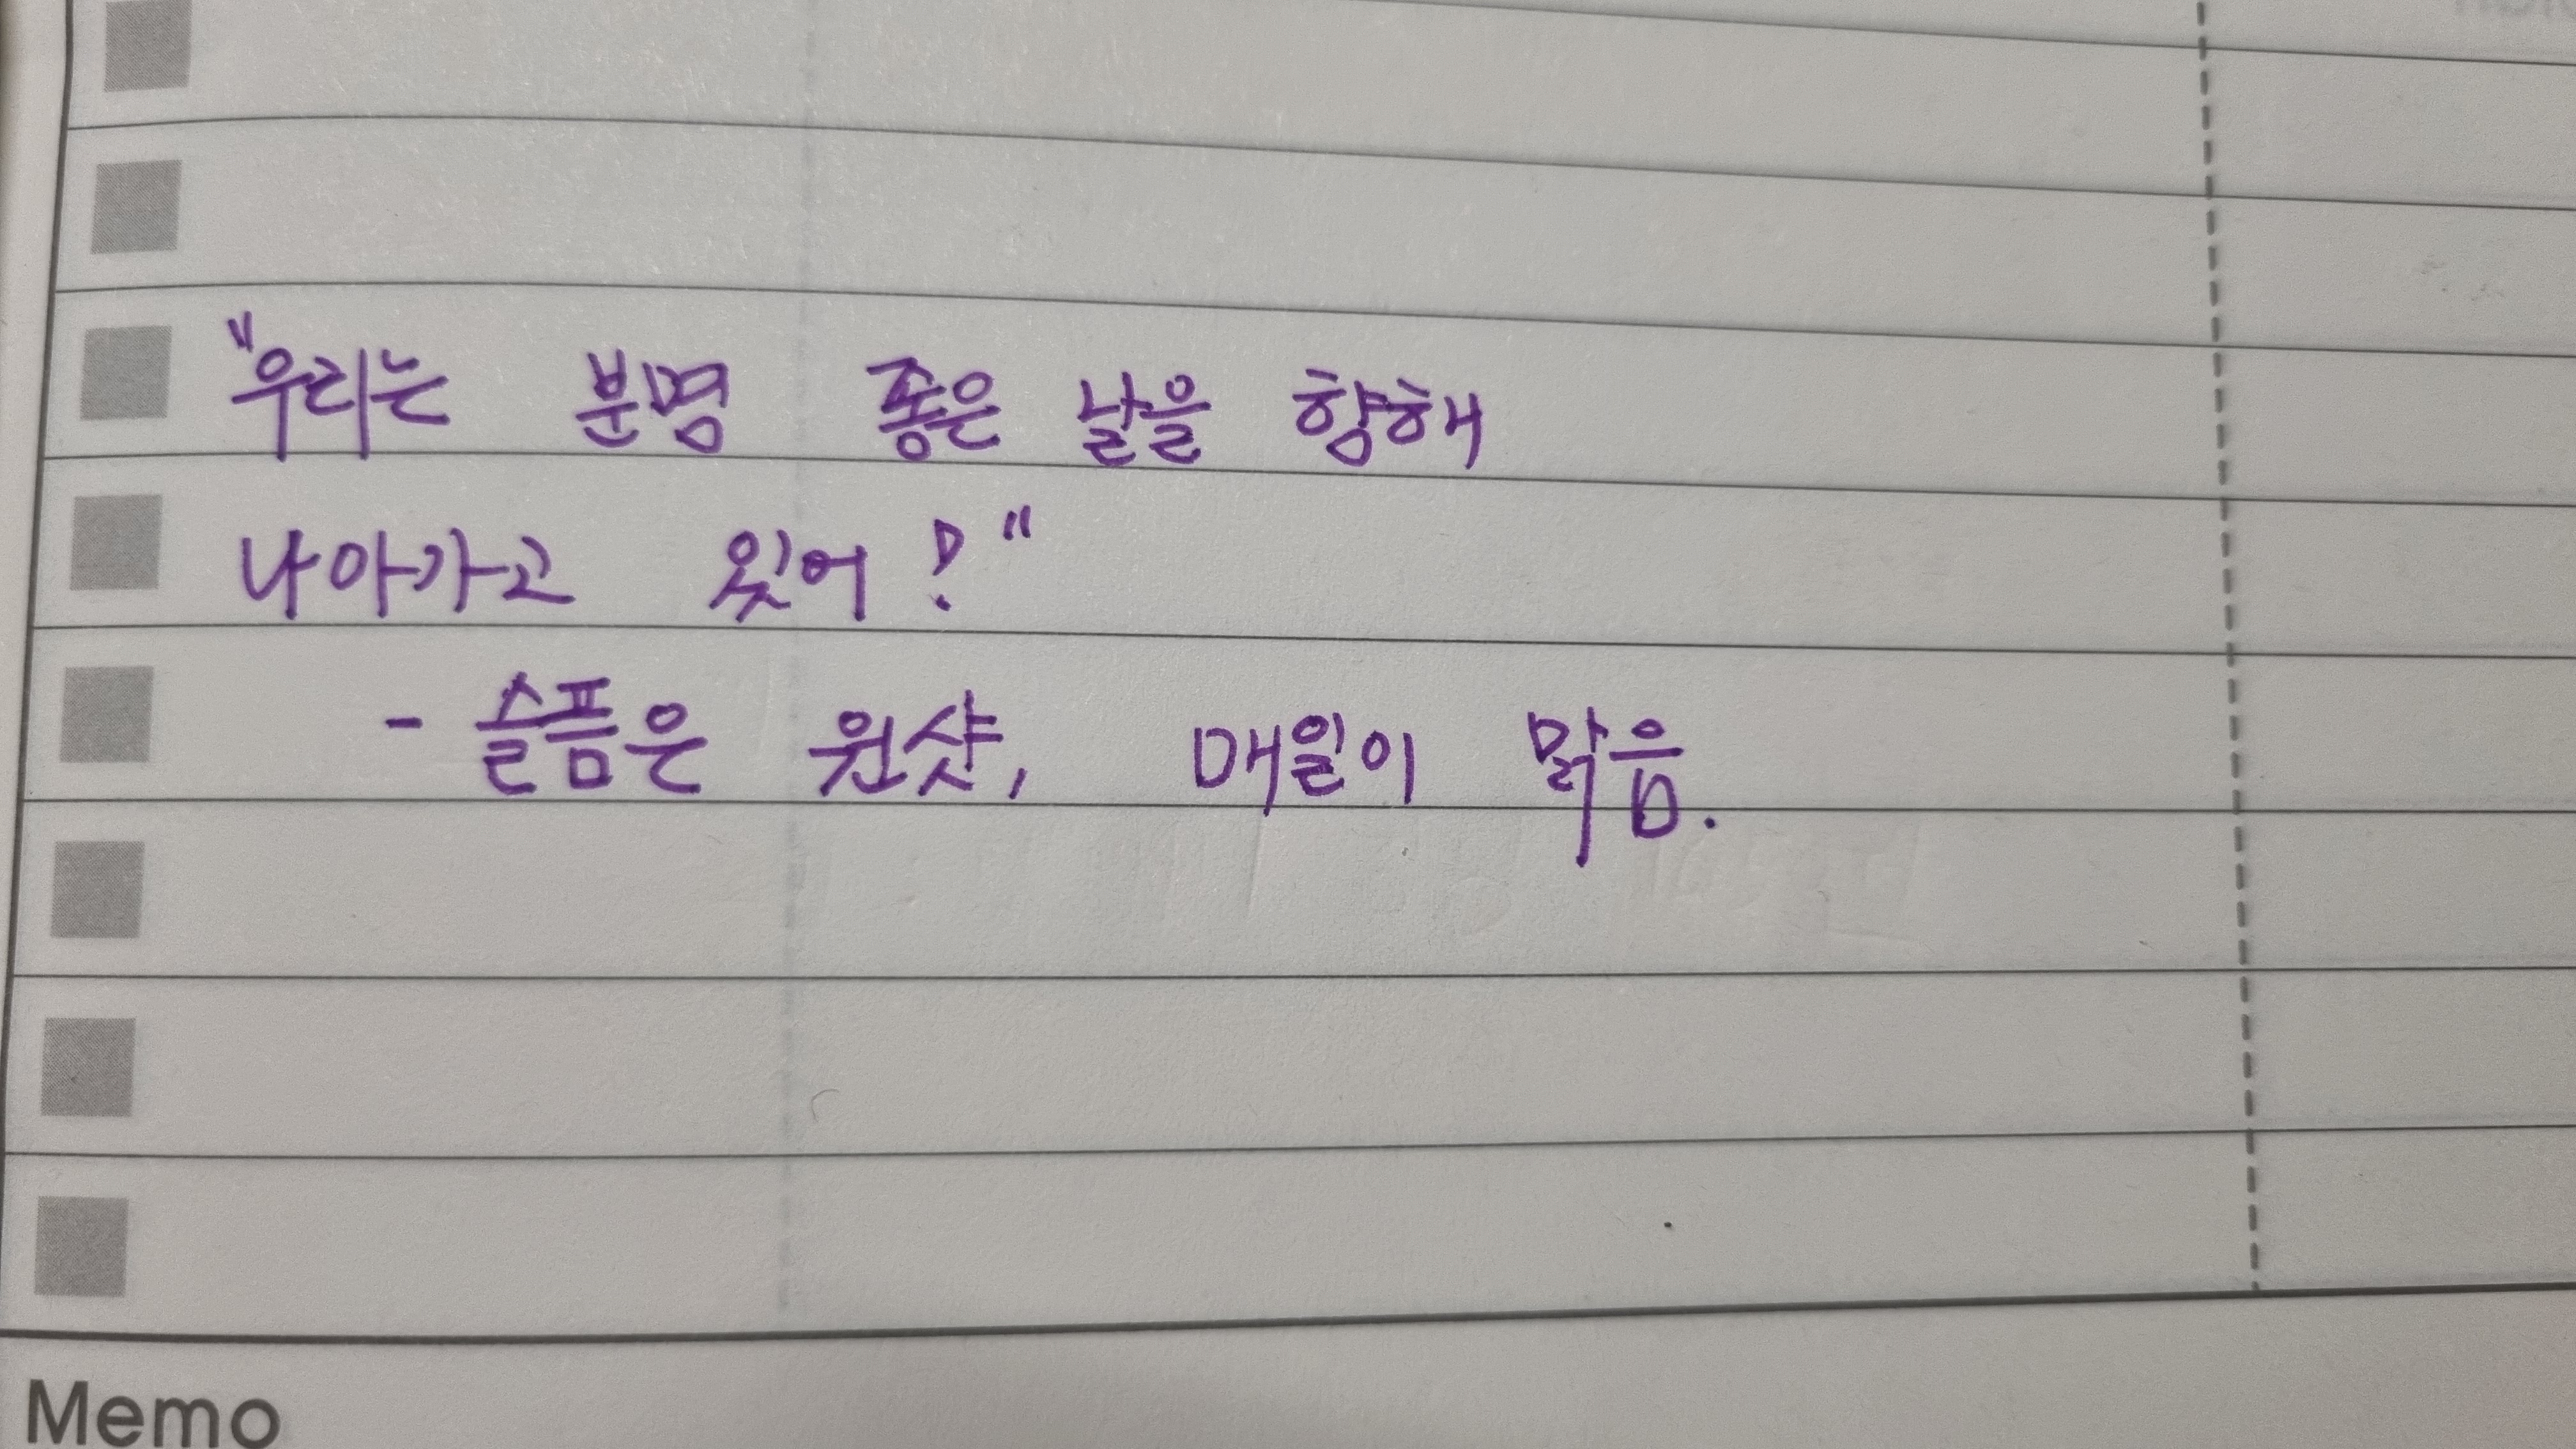 "우리는 분명 좋은 날을 향해
나아가고 있어!"
- 슬픔은 원샷, 매일이 맑음.
Memo